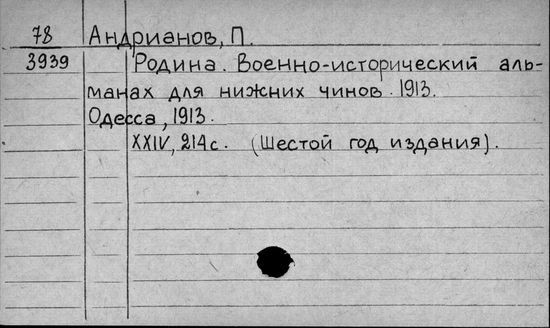 78 Андрианов, П.
3939 Родина. Военно-исторический аль-
манах для нижних чинов. 1913.
Одесса, 1913.
XXIV, 214 с. (Шестой год издания).